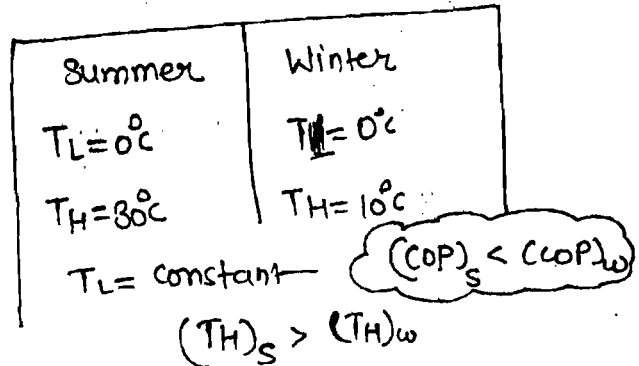 Summer Winter
TL = 0°C TL = 0°C
TH = 30°C TH = 10°C
TL = constant (COP)s < (COP)w
(TH)s > (TH)w